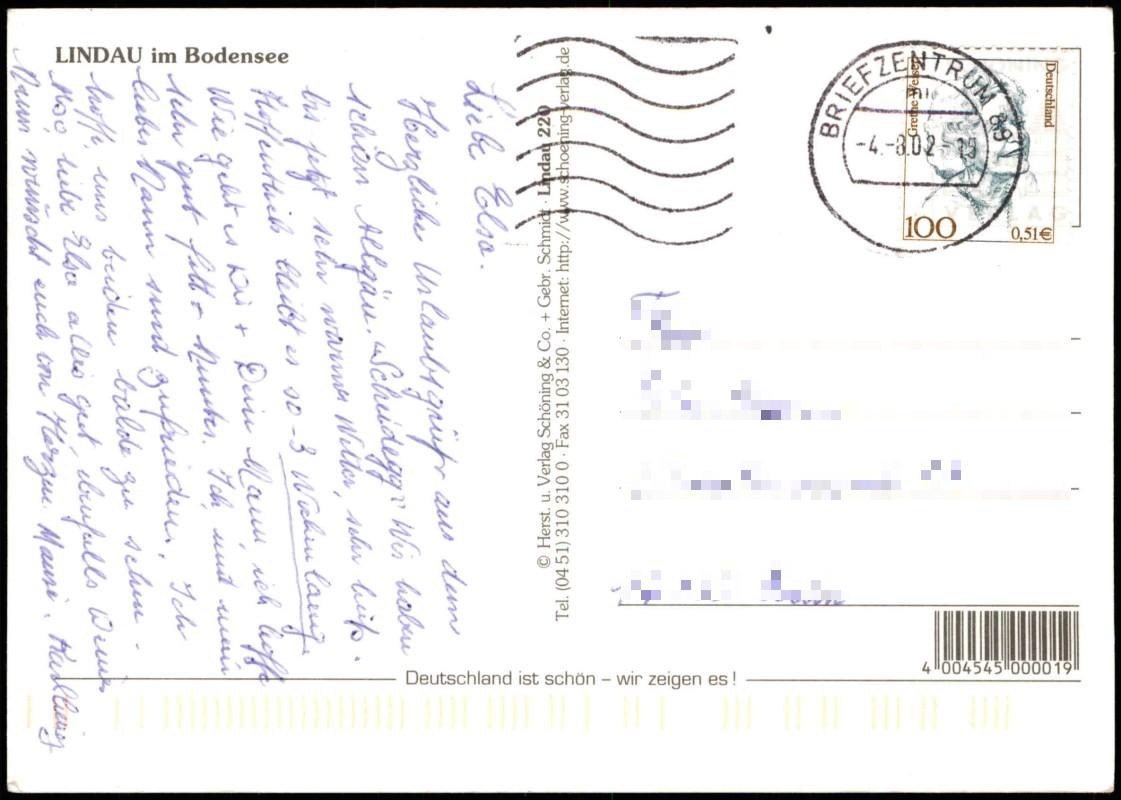 LINDAU im Bodensee
Liebe Elsa.
Herzliche Urlaubsgrüße aus dem
schönen Allgäu. Scheidegg. Wir haben
bis jetzt sehr warmes Wetter, sehr heiß.
Hoffentlich bleibt es so - 3 Wochen lang.
Wie geht es Dir + Dein Mann, ich hoffe
sehr gut fitt + Munter. Ich, und mein
lieber Mann sind zufrieden. Ich
hoffe, uns beiden balde zu sehen.
Also, liebe Elsa alles gut, ebenfalls Deine
Mann, wünscht euch von Herzen.
© Herst. u. Verlag Schöning & Co. + Gebr. Schmidt · Lindau 220
Tel. (04 51) 310 310 0 · Fax 31 03 130 · Internet: http://www.schoening-verlag.de
BRIEFZENTRUM 89
-4.-8.02-
Grethe Weiser
Deutschland
100
0,51€
4 004545 000019
Deutschland ist schön – wir zeigen es !